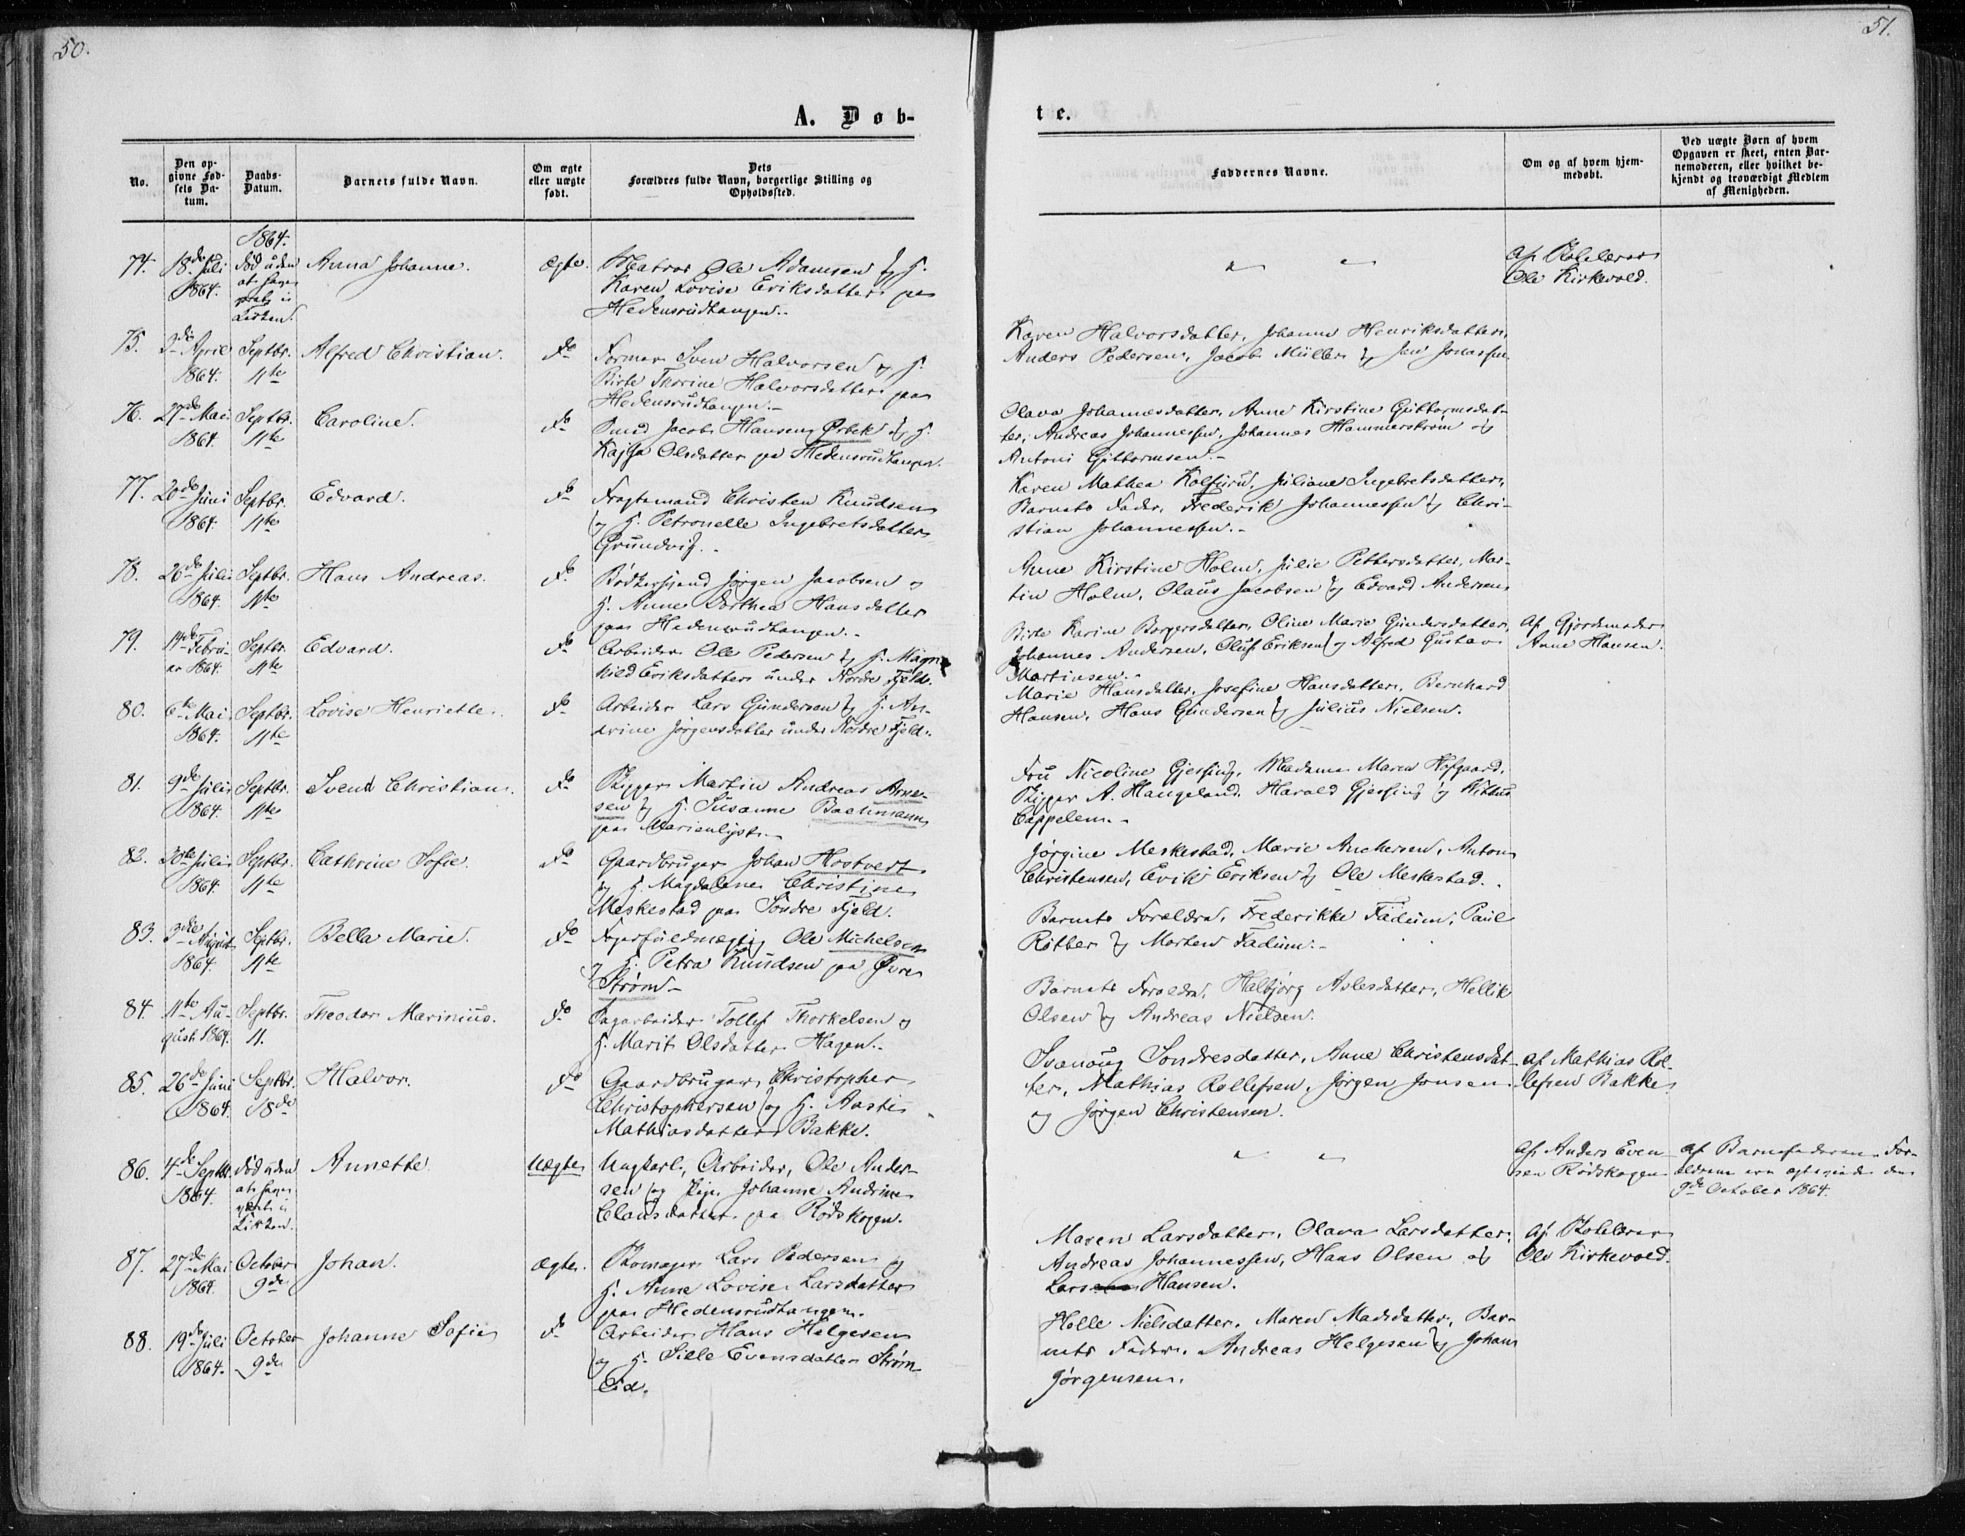 50.
51.
A. Døb-
te.
No.
Den op-
givne Fød-
sels Da-
tum.
Daabs-
Datum.
Barnets fulde Navn.
Om ægte
eller uægte
født.
Dets
Forældres fulde Navn, borgerlige Stilling og
Opholdssted.
Faddernes Navne.
Om og af hvem hjem-
medøbt.
Ved uægte Børn af hvem
Opgaven er skeet, enten Bar-
nemoderen, eller hvilket be-
kjendt og troværdigt Medlem
af Menigheden.
1864.
74. 18de Juli 1864. død uden at Anna Johanne. ægte. Matros Ole Adamsen og H.
Karen Lovise Eriksdatter paa
Hedensrudtangen.
" "
af Skolelærer
Ole Kirkevold.
75. 3die April 1864. Septbr. 11te Alfred Christian. Do Former Sven Halvorsen og H.
Birte Thorine Halvorsdatter paa
Hedensrudtangen.
Karen Halvorsdatter, Johanne Henriksdatter,
Anders Pedersen, Jacob Müller og Jens Jonassen
76. 27de Mai 1864. Septbr. 11te Caroline. Do Smed Jacob Hansen Ørbek og H.
Kajsa Olsdatter paa Hedensrudtangen.
Olava Johannesdatter, Anne Kirstine Guttormsdat-
ter, Andreas Johannessen, Johannes Hammerstrøm og
Antoni Guttormsen.
77. 20de Juni 1864. Septbr. 11te Edvard. Do Fragtemand Christen Knudsen
og H. Petronelle Ingebretsdatter
Grundvig.
Karen Mathea Kolsrud, Juliane Ingebretsdatter,
Barnets Fader, Frederik Johannessen og Chri-
stian Johannessen.
78. 26de Juli 1864. Septbr. 11te Hans Andreas. Do Bødkersvend Jørgen Jacobsen og
H. Anne Dorthea Hansdatter
paa Hedensrudtangen.
Anne Kirstine Holm, Julie Pettersdatter, Mar-
tin Holm, Olaus Jacobsen og Edvard Andersen
79. 14de Februar 1864. Septbr. 11te Edvard. Do Arbeider Ole Pedersen og H. Magn-
hild Eriksdatter under Nordre Fjeld.
Birte Karine Borgersdatter, Oline Marie Gundersdatter,
Johannes Andersen, Oluf Eriksen og Alfred Gustav
Martinsen.
af Gjordemoder
Anne Hansen.
80. 6te Mai 1864. Septbr. 11te Lovise Henriette. Do Arbeider Lars Gundersen og H. An-
drine Jørgensdatter under Nordre Fjeld.
Marie Hansdatter, Josefine Hansdatter, Bernhard
Hansen, Hans Gundersen og Julius Nielsen.
81. 9de Juli 1864. Septbr. 11te Svend Christian. Do Skipper Martin Andreas Arne-
sen og H. Susanne Bachmann
paa Marienlyst.
Fru Nicoline Gjessing, Madame Maren Hofgaard,
Skipper A. Haugeland, Harald Gjessing og
Cappelen.
82. 30te Juli 1864. Septbr. 11te Cathrine Sofie. Do Gaardbruger Johan Hostvert
og H. Magdalene Christine
Meskestad paa Søndre Fjeld.
Jørgine Meskestad, Marie Anchersen, Anton
Christensen, Erik Eriksen og Ole Meskestad.
83. 3die August 1864. Septbr. 11te Bella Marie. Do Ole Michelsen
og H. Petra Knudsen paa Øvre
Strøm
Barnets Forældre, Frederikke Fadum, Paul
Røtter og Morten Fadum.
84. 11te August 1864. Septbr. 11. Theodor Marinius. Do Sagarbeider Tollef Thorkelsen og
H. Marit Olsdatter Hagen.
Barnets Forældre, Halbjørg Aslesdatter, Hellik
Olsen og Andreas Nielsen.
85. 26de Juni 1864. Septbr. 18de Halvor. Do Gaardbruger Christopher
Christophersen og H. Aaste
Mathiasdatter Bakke.
Svanoug Sondresdatter, Anne Christensdat-
ter, Mathias Rollefsen, Jørgen Jonsen
og Jørgen Christensen.
af Mathias Rol-
lefsen Bakke
86. 4de Septbr. 1864. død uden at Annette Uægte Ungkarl, Arbeider, Ole Ander-
sen og Pige Johanne Andrine
Clausdatter paa Rødskogen.
" "
af Anders Even-
sen Rødskogen
af Barnefaderen. For-
ældrene ere ægteviede den
9de October 1864.
87. 27de Mai 1864. October 9de Johan. ægte. Skomager Lars Pedersen og
H. Anne Lovise Larsdatter
paa Hedensrudtangen.
Maren Larsdatter, Olava Larsdatter,
Andreas Johannessen, Hans Olsen og
Lars Hansen.
af Skolelærer
Ole Kirkevold.
88. 19de Juli 1864. October 9de Johanne Sofie Do Arbeider Hans Helgesen
og H. Sille Evensdatter Strøm
Eid.
Helle Nielsdatter, Maren Madsdatter, Bar-
nets Fader, Andreas Helgesen og Johan
Jørgensen.